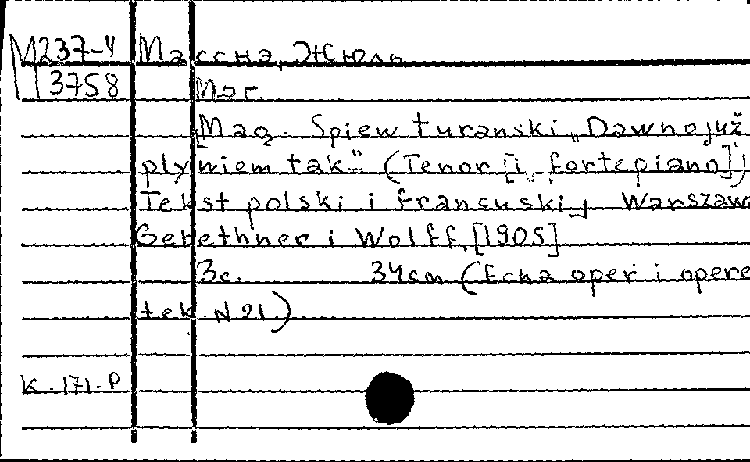 М237-4 Массне, Жюль
13758 Маг.
[Mag. Spiew turanski „Dawno już
płyniem tak" (Tenor [i fortepiano])
Tekst polski i francuski] Warszawa
Gebethner i Wolff, [1905]
3c. 34cm (Echa oper i opere
tek N 21)
K-171-P